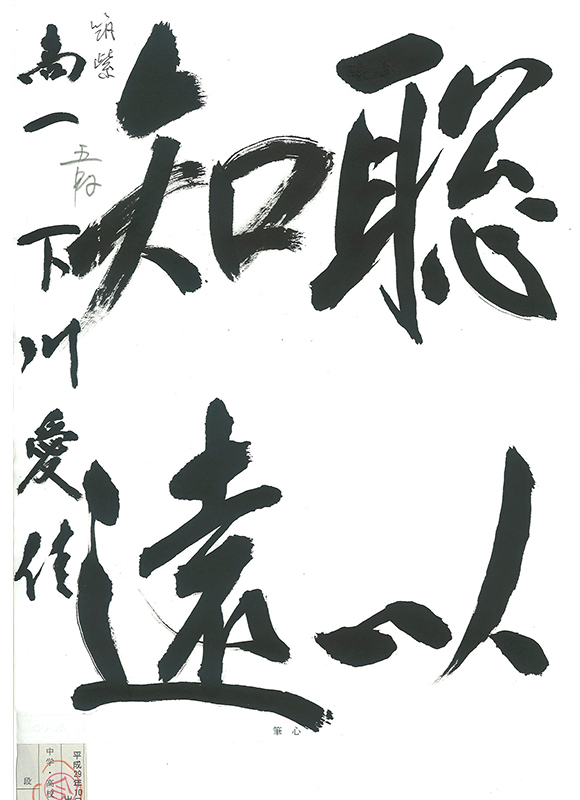 聡以
知遠
筑紫
高一 五段 下川愛佳
筆心
平成29年10
中学・高校
段